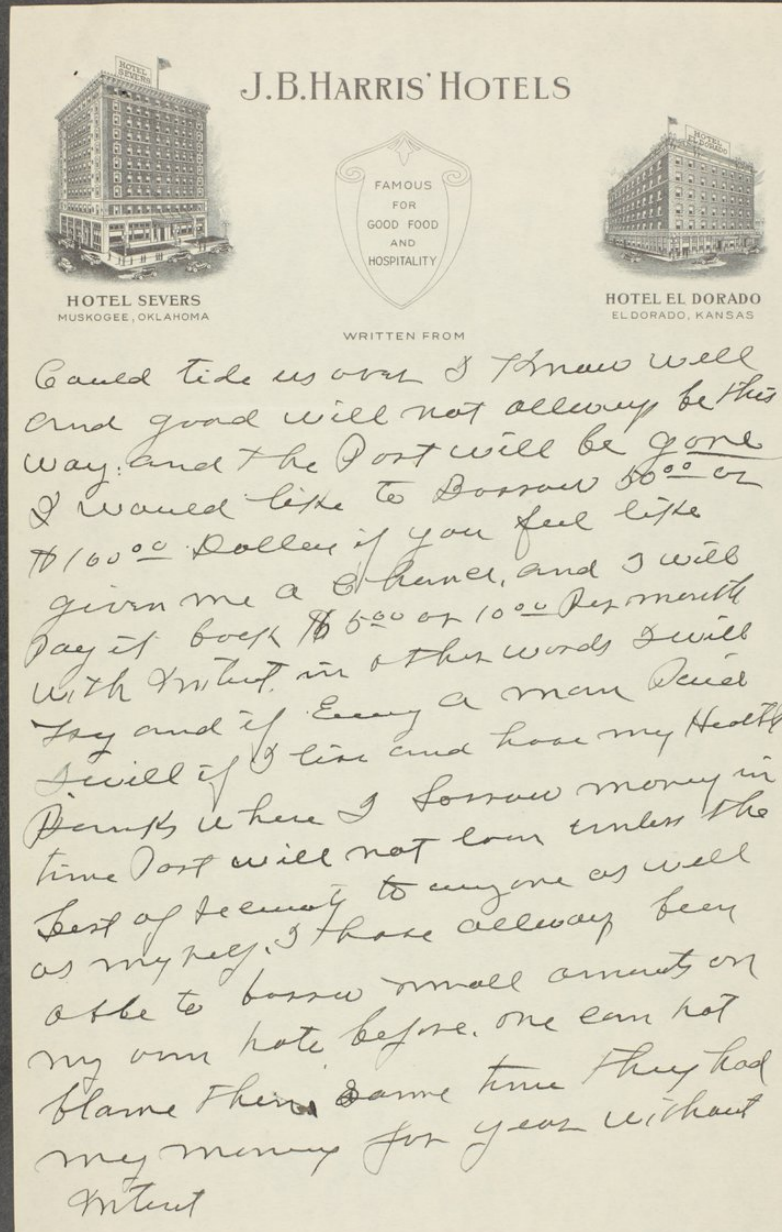 HOTEL SEVERS
J.B. HARRIS' HOTELS
HOTEL EL DORADO
FAMOUS
FOR
GOOD FOOD
AND
HOSPITALITY
HOTEL SEVERS
MUSKOGEE, OKLAHOMA
HOTEL EL DORADO
EL DORADO, KANSAS
WRITTEN FROM
Could tide us over I Know well
and good will not allways be this
way. and the Past will be gone
I would like to Borrow 50.00 or
$100.00 Dollers if you feel like
given me a Chance, and I will
Pay it back $5.00 or 10.00 Per month
with Intrest. in other words I will
try and if Envy a man Paid
I will if I live and have my Health
Banks where I borrow money in
time Past will not loan unless the
best of security to anyone as well
as my self. I have allways been
able to borrow small amounts on
my own note before. one can not
blame them same time They had
my money for year without
Intrest